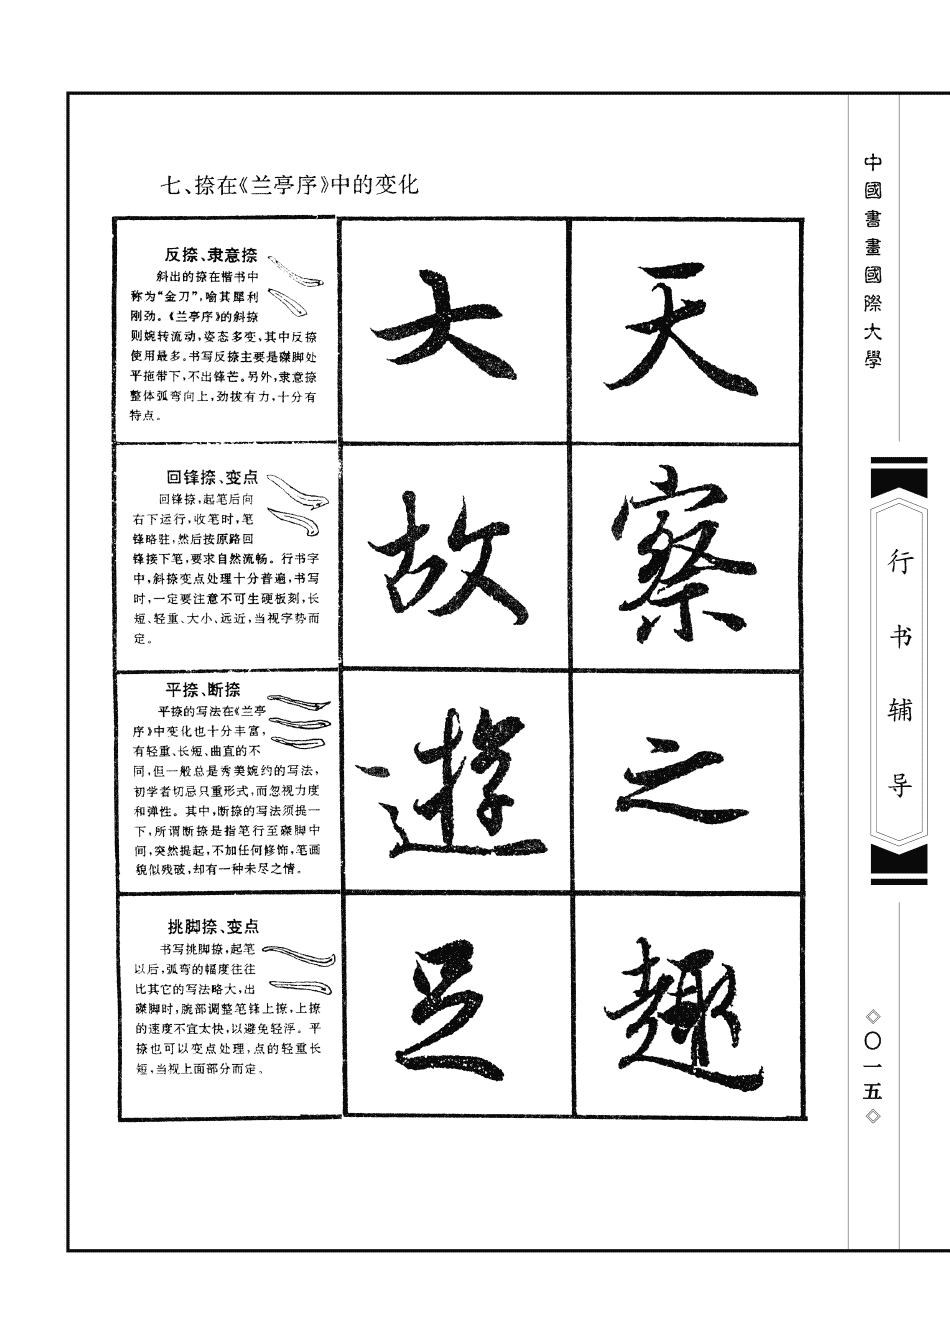 七、捺在《兰亭序》中的变化
反捺、隶意捺
斜出的捺在楷书中
称为“金刀”，喻其犀利
刚劲。《兰亭序》的斜捺
则婉转流动，姿态多变，其中反捺
使用最多。书写反捺主要是磔脚处
平拖带下，不出锋芒。另外，隶意捺
整体弧弯向上，劲拔有力，十分有
特点。
大
天
回锋捺、变点
回锋捺，起笔后向
右下运行，收笔时，笔
锋略驻，然后按原路回
锋接下笔，要求自然流畅。行书字
中，斜捺变点处理十分普遍，书写
时，一定要注意不可生硬板刻，长
短、轻重、大小、远近，当视字势而
定。
故
察
平捺、断捺
平捺的写法在《兰亭
序》中变化也十分丰富，
有轻重、长短、曲直的不
同，但一般总是秀美婉约的写法，
初学者切忌只重形式，而忽视力度
和弹性。其中，断捺的写法须提一
下，所谓断捺是指笔行至磔脚中
间，突然提起，不加任何修饰，笔画
貌似残破，却有一种未尽之情。
遊
之
挑脚捺、变点
书写挑脚捺，起笔
以后，弧弯的幅度往往
比其它的写法略大，出
磔脚时，腕部调整笔锋上撩，上撩
的速度不宜太快，以避免轻浮。平
捺也可以变点处理，点的轻重长
短，当视上面部分而定。
足
趣
中國書畫國際大學
行书辅导
◇〇一五◇